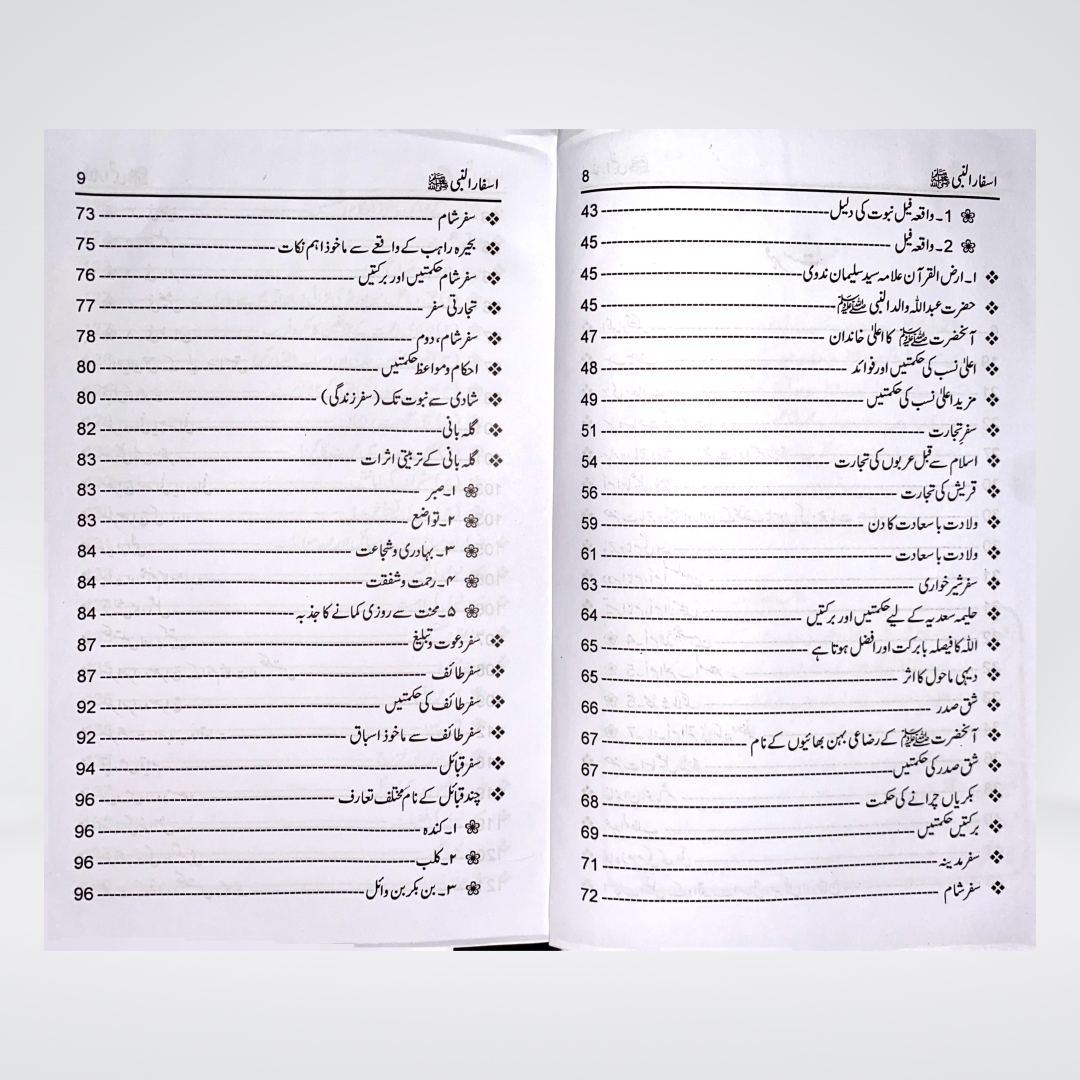 اسفار النبی ﷺ 8
1۔ واقعہ فیل نبوت کی دلیل 43
2۔ واقعہ فیل 45
۱۔ ارض القرآن علامہ سید سلیمان ندوی 45
حضرت عبداللہ والد النبی ﷺ 45
آنحضرت ﷺ کا اعلیٰ خاندان 47
اعلیٰ نسب کی حکمتیں اور فوائد 48
مزید اعلیٰ نسب کی حکمتیں 49
سفرِ تجارت 51
اسلام سے قبل عربوں کی تجارت 54
قریش کی تجارت 56
ولادت باسعادت کا دن 59
ولادت باسعادت 61
سفر شیر خواری 63
حلیمہ سعدیہ کے لیے حکمتیں اور برکتیں 64
اللہ کا فیصلہ بابرکت اور افضل ہوتا ہے 65
دیہی ماحول کا اثر 65
شق صدر 66
آنحضرت ﷺ کے رضاعی بہن بھائیوں کے نام 67
شق صدر کی حکمتیں 67
بکریاں چرانے کی حکمت 68
برکتیں حکمتیں 69
سفر مدینہ 71
سفر شام 72
اسفار النبی ﷺ 9
سفر شام 73
بحیرہ راہب کے واقعے سے ماخوذ اہم نکات 75
سفر شام حکمتیں اور برکتیں 76
تجارتی سفر 77
سفر شام، دوم 78
احکام و مواعظ حکمتیں 80
شادی سے نبوت تک (سفر زندگی) 80
گلہ بانی 82
گلہ بانی کے تربیتی اثرات 83
۱۔ صبر 83
۲۔ تواضع 83
۳۔ بہادری و شجاعت 84
۴۔ رحمت و شفقت 84
۵۔ محنت سے روزی کمانے کا جذبہ 84
سفر دعوت و تبلیغ 87
سفر طائف 87
سفر طائف کی حکمتیں 92
سفر طائف سے ماخوذ اسباق 92
سفر قبائل 94
چند قبائل کے نام مختلف تعارف 96
۱۔ کندہ 96
۲۔ کلب 96
۳۔ بن بکر بن وائل 96